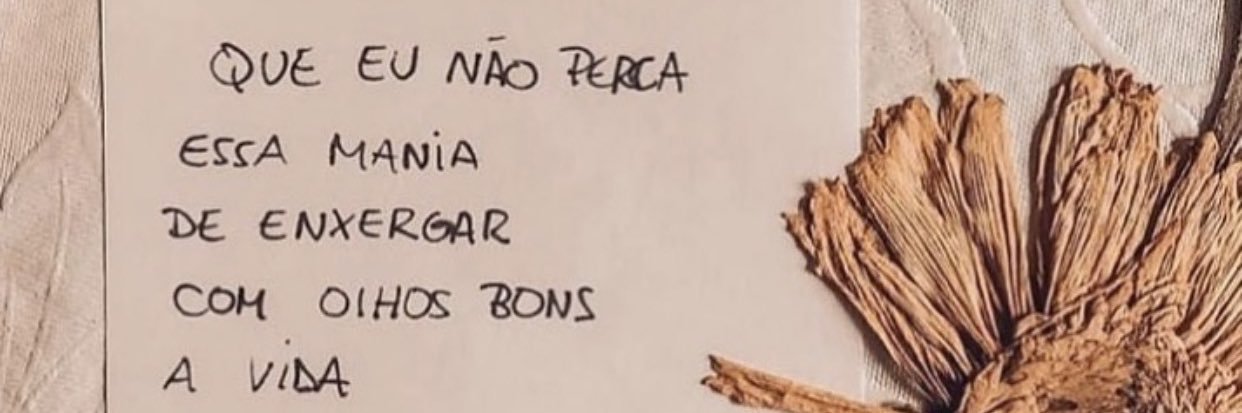 QUE EU NÃO PERCA
ESSA MANIA
DE ENXERGAR
COM OLHOS BONS
A VIDA